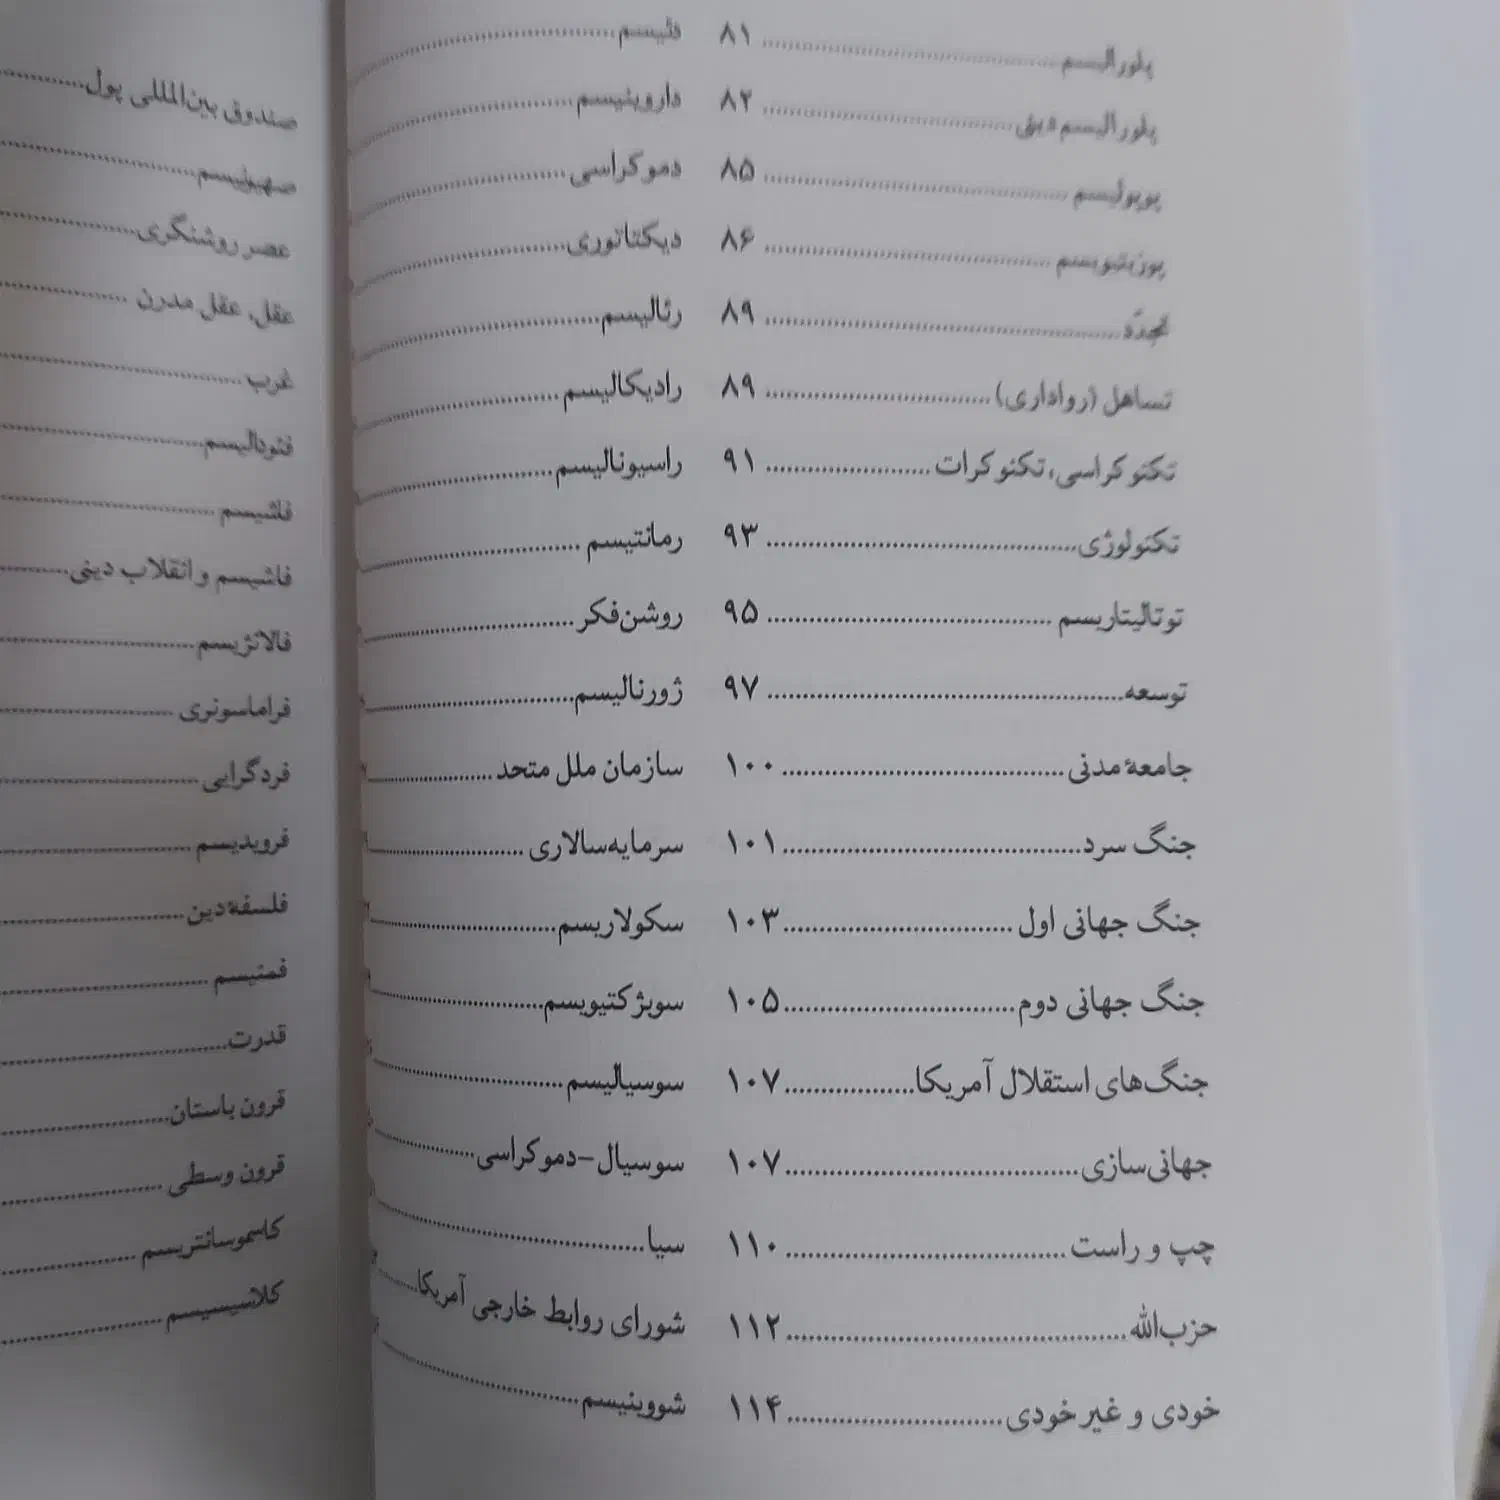 پلورالیسم ........ ۸۱
پلورالیسم دینی ........ ۸۲
پوپولیسم ........ ۸۵
پوزیتیویسم ........ ۸۶
تجدّد ........ ۸۹
تساهل (رواداری) ........ ۸۹
تکنوکراسی، تکنوکرات ........ ۹۱
تکنولوژی ........ ۹۳
توتالیتاریسم ........ ۹۵
توسعه ........ ۹۷
جامعهٔ مدنی ........ ۱۰۰
جنگ سرد ........ ۱۰۱
جنگ جهانی اول ........ ۱۰۳
جنگ جهانی دوم ........ ۱۰۵
جنگ‌های استقلال آمریکا ........ ۱۰۷
جهانی‌سازی ........ ۱۰۷
چپ و راست ........ ۱۱۰
حزب‌الله ........ ۱۱۲
خودی و غیرخودی ........ ۱۱۴
دئیسم ........
داروینیسم ........
دموکراسی ........
دیکتاتوری ........
رئالیسم ........
رادیکالیسم ........
راسیونالیسم ........
رمانتیسم ........
روشن‌فکر ........
ژورنالیسم ........
سازمان ملل متحد ........
سرمایه‌سالاری ........
سکولاریسم ........
سوبژکتیویسم ........
سوسیالیسم ........
سوسیال–دموکراسی ........
سیا ........
شورای روابط خارجی آمریکا ........
شووینیسم ........
صندوق بین‌المللی پول ........
صهیونیسم ........
عصر روشنگری ........
عقل، عقل مدرن ........
غرب ........
فئودالیسم ........
فاشیسم ........
فاشیسم و انقلاب دینی ........
فالانژیسم ........
فراماسونری ........
فردگرایی ........
فرویدیسم ........
فلسفهٔ دین ........
فمنیسم ........
قدرت ........
قرون باستان ........
قرون وسطی ........
کاسموسانتریسم ........
کلاسیسیسم ........